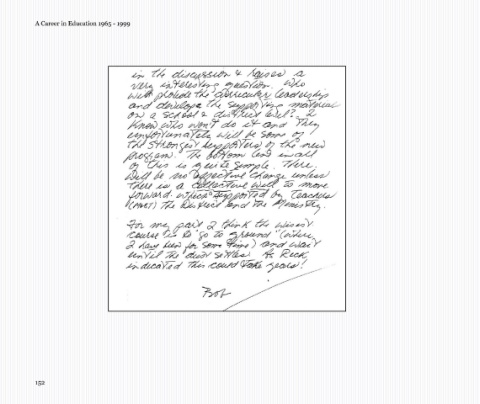 A Career in Education 1965 - 1999
in the discussion & raises a
very interesting question. Who
will provide the curricular leadership
and develope the supporting material
on a school & district level? I
know who won't do it and they
unfortunately will be some of
the strongest supporters of the new
program. The bottom line in all
of this is quite simple. There
will be no effective change unless
there is a collective will to move
forward which is supported by teachers
(most) the District and the Ministry.
For my part I think the wisest
course is to "go to ground" (where
I have been for some time) and wait
until the dust settles. As Rick
indicated this could take years!
Bob
152